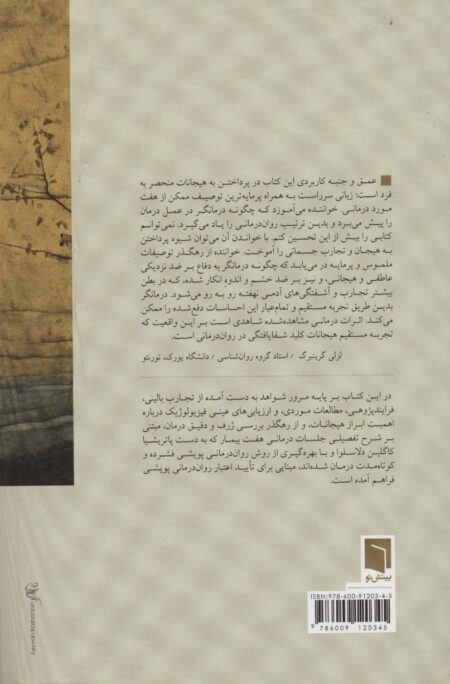 عمـق و جنبـه کاربـردی ایـن کتـاب در پرداختـن به هیجانات منحصر به
فرد است: زبانی سرراست به همراه پرمایه‌ترین توصیف ممکن از هفت
مورد درمانی. خواننده می‌آموزد که چگونه درمانگر در عمل درمان
را پیش می‌برد و بدین ترتیب روان‌درمانی را یاد می‌گیرد. نمی‌توانم
کتابی را بیش از این تحسین کنم. با خواندن آن می‌توان شیوه پرداختن
به هیجان و تجارب جسمانی را آموخت. خواننده از رهگذر توصیفات
ملموس و پرمایه در می‌یابد که چگونه درمانگر به دفاع بر ضد نزدیکی
عاطفی و هیجانی، و نیز بر ضد خشم و اندوه انکار شده، که در بطن
بیشتر تجارب و آشفتگی‌های آدمی نهفته رو به رو می‌شود. درمانگر
بدین طریق تجربه مستقیم و تمام‌عیار این احساسات دفع‌شده را ممکن
می‌کند. اثرات درمانی مشاهده‌شده شاهدی است بر این واقعیت که
تجربه مستقیم هیجانات کلید شفایافتگی در روان‌درمانی است.
لزلی گرینبرگ / استاد گروه روان‌شناسی / دانشگاه یورک، تورنتو
در این کتاب بر پایه مرور شواهد به دست آمده از تجارب بالینی،
فرایندپژوهی، مطالعات موردی، و ارزیابی‌های عینی فیزیولوژیک درباره
اهمیت ابراز هیجانات، و از رهگذر بررسی ژرف و دقیق درمان، مبتنی
بر شرح تفصیلی جلسات درمانی هفت بیمار که به دست پاتریشیا
کاگلین دلاسلوا و با بهره‌گیری از روش روان‌درمانی پویشی فشرده و
کوتاه‌مدت درمان شده‌اند، مبنایی برای تأیید اعتبار روان‌درمانی پویشی
فراهم آمده است.
بینش نو
ISBN: 978-600-91203-4-5
9 786009 120345